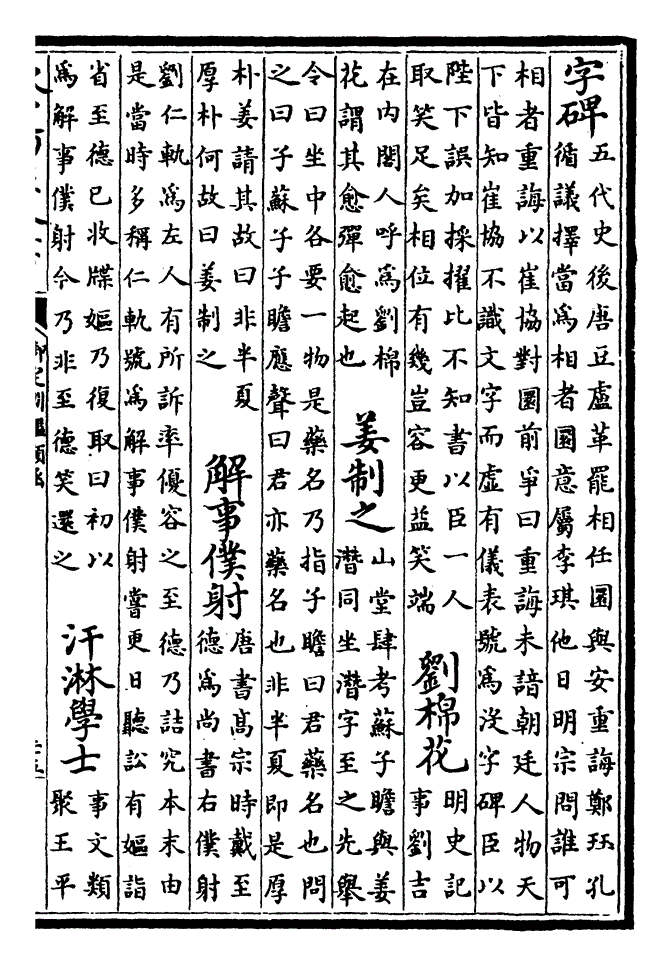 字碑
五代史後唐豆盧革罷相任圜與安重誨鄭珏孔
循議擇當爲相者圜意屬李琪他日明宗問誰可
相者重誨以崔協對圜前爭曰重誨未諳朝廷人物天
下皆知崔協不識文字而虛有儀表號爲沒字碑臣以
陛下誤加採擢比不知書以臣一人
取笑足矣相位有幾豈容更益笑端
劉棉花
明史記
事劉吉
在内閣人呼爲劉棉
花謂其愈彈愈起也
姜制之
山堂肆考蘇子瞻與姜
潛同坐潛字至之先舉
令曰坐中各要一物是藥名乃指子瞻曰君藥名也問
之曰子蘇子子瞻應聲曰君亦藥名也非半夏即是厚
朴姜請其故曰非半夏
厚朴何故曰姜制之
解事僕射
唐書髙宗時戴至
德爲尚書右僕射
劉仁軌爲左人有所訴率優容之至德乃詰究本末由
是當時多稱仁軌號爲解事僕射嘗更日聽訟有嫗詣
省至德已收牒嫗乃復取曰初以
爲解事僕射今乃非至德笑還之
汗淋學士
事文類
聚王平